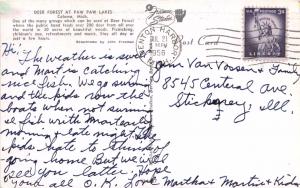 DEER FOREST AT PAW PAW LAKES
Coloma, Mich.
One of the many groups which can be seen at Deer Forest
where the public hand feeds over 200 deer from all over
the world in 30 acres of beautiful woods. Picnicking,
children's zoo, refreshments and music. Stay all day or
just a few hours.
Post Card
BENTON HARBOR
MICH.
1958
Hi,
The weather is swell
and Mart is catching
nice fish. We go swim
and the kids row the
boats when not swimming
or fish with Mart early
morning & late night. The
kids hate to think of
going home. But we will
see you latter. Hope
you all O.K. Love Martha & Martin & Kids
Jim Van Vossen & Family
8545 Central ave
Stickney, Ill.